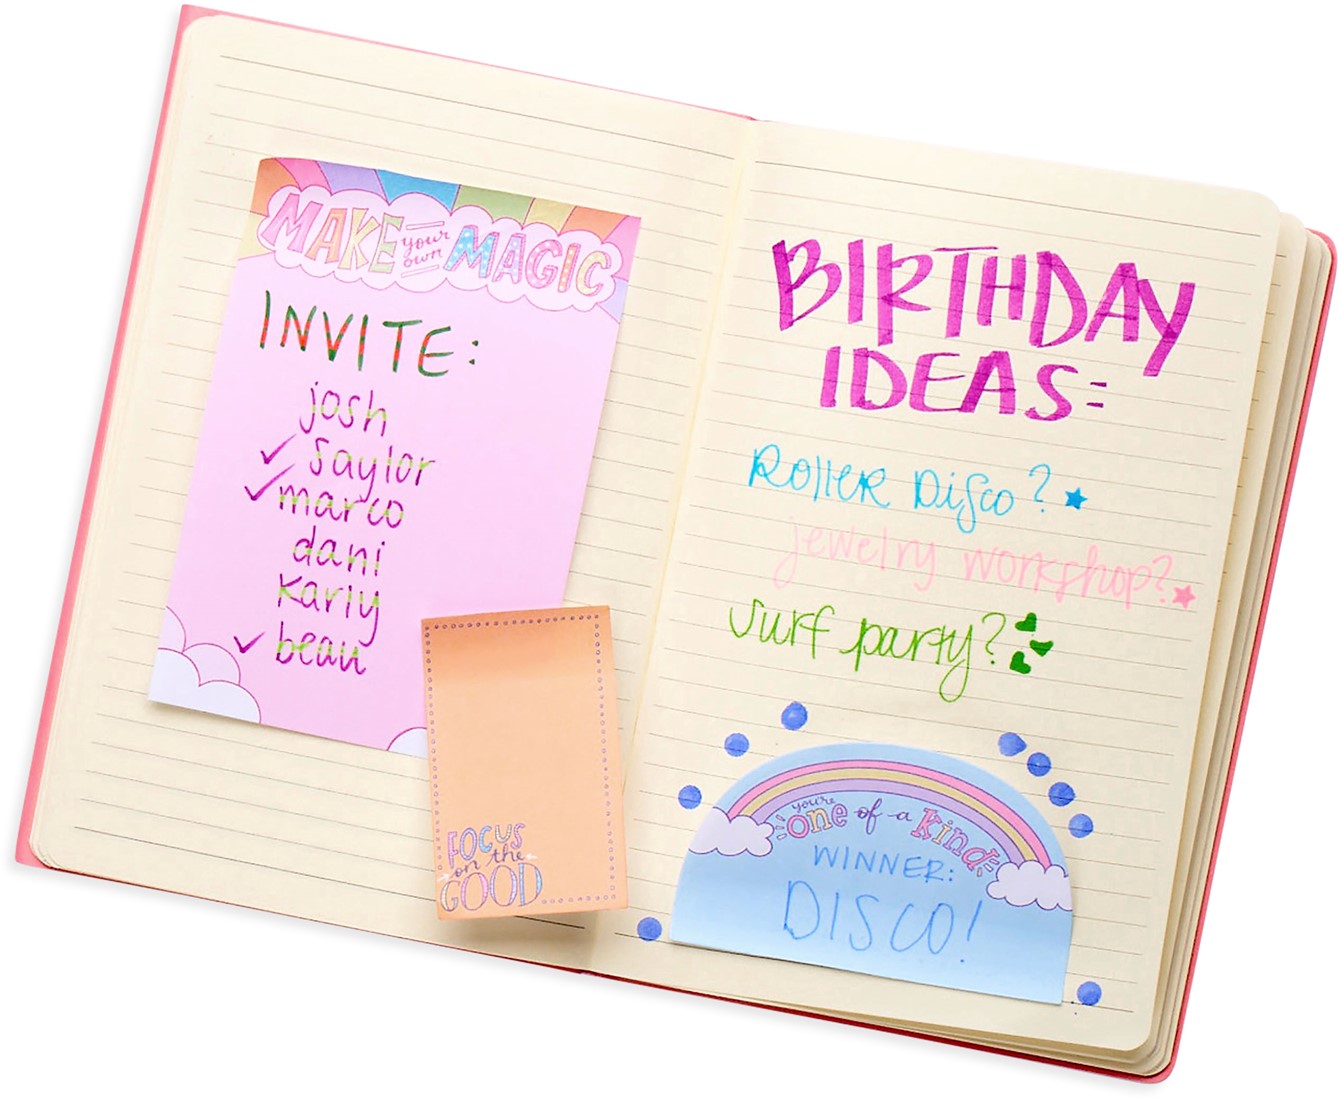 MAKE your own MAGIC
INVITE:
josh
✓ saylor
✓ marco
dani
karly
✓ beau
FOCUS
on the
GOOD
BIRTHDAY
IDEAS:
Roller Disco?
jewelry workshop?
surf party?
you're
one of a kind
WINNER:
DISCO!